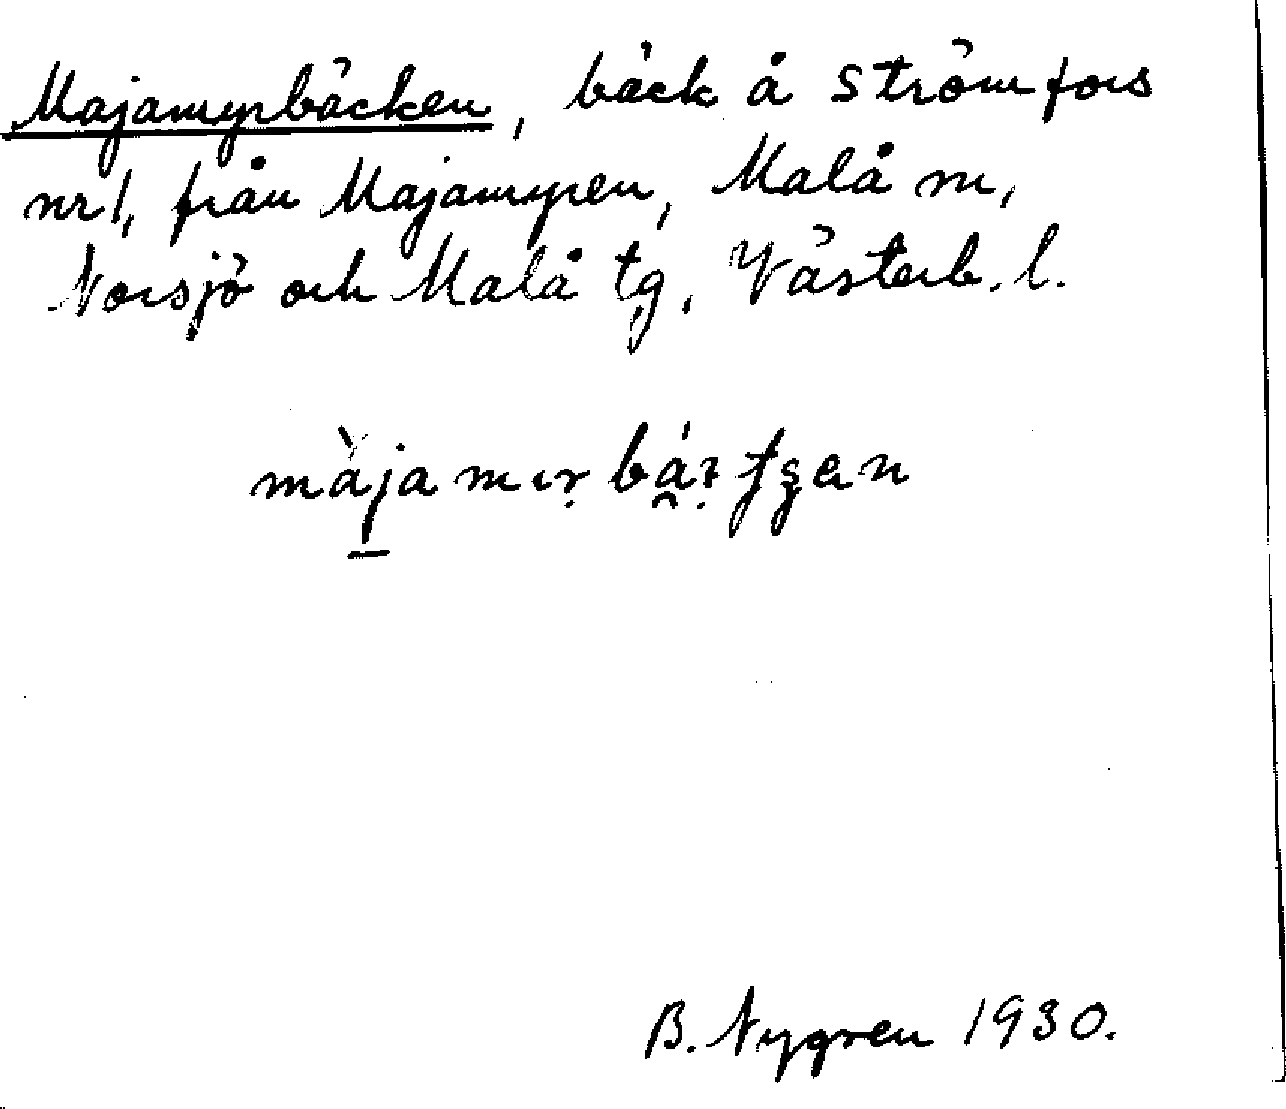 Majamyrbäcken, bäck å Strömfors
nr 1, från Majamyren, Malå sn,
Norsjö och Malå tg, Västerb. l.
màjamırbáꝛtʂen
B. Nygren 1930.